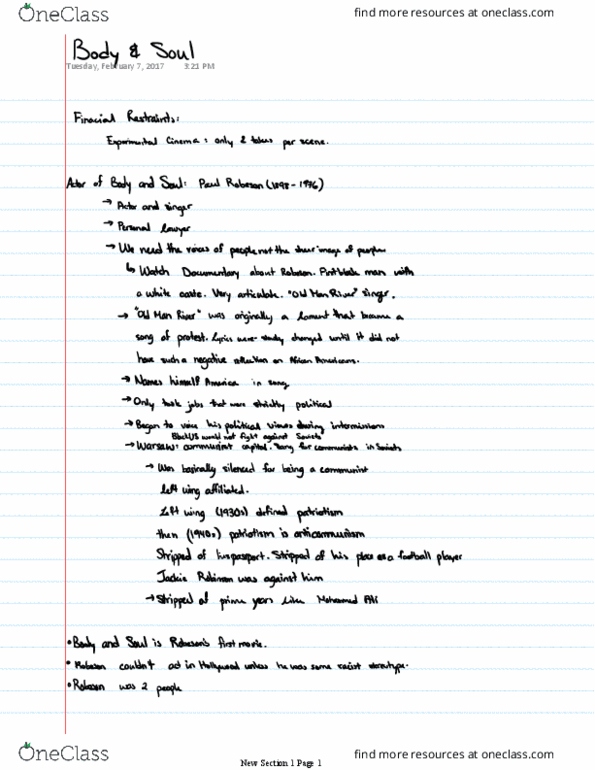 OneClass
find more resources at oneclass.com
Body & Soul
Tuesday, February 7, 2017 3:21 PM
Finacial Restraints:
Experimental Cinema: only 2 takes per scene.
Actor of Body and Soul: Paul Robeson (1898-1976)
→ Actor and singer
→ Personal lawyer
→ We need the voices of people not the sheer image of people
↳ Watch Documentary about Robeson. man with
a white . Very articulate. "Old Man River" singer.
→ "Old Man River" was originally a lament that became a
song of protest. Lyrics were changed until it did not
have such a negative reflection on African Americans.
→ Names himself America in song
→ Only took jobs that were strictly political
→ Began to voice his political views during intermissions
Black US would not fight against Soviets
→ Warsaw: communist capital. Sang for communists in Soviets
→ Was basically silenced for being a communist
left wing affiliated.
Left wing (1930s) defined patriotism
then (1940s) patriotism is anticommunism
Stripped of his passport. Stripped of his place as a football player
Jackie Robinson was against him
→ Stripped of prime years like Mohamed Ali
• Body and Soul is Robeson's first movie.
• Robeson couldn't act in Hollywood unless he was some racist stereotype.
• Robeson was 2 people
OneClass
find more resources at oneclass.com
New Section 1 Page 1